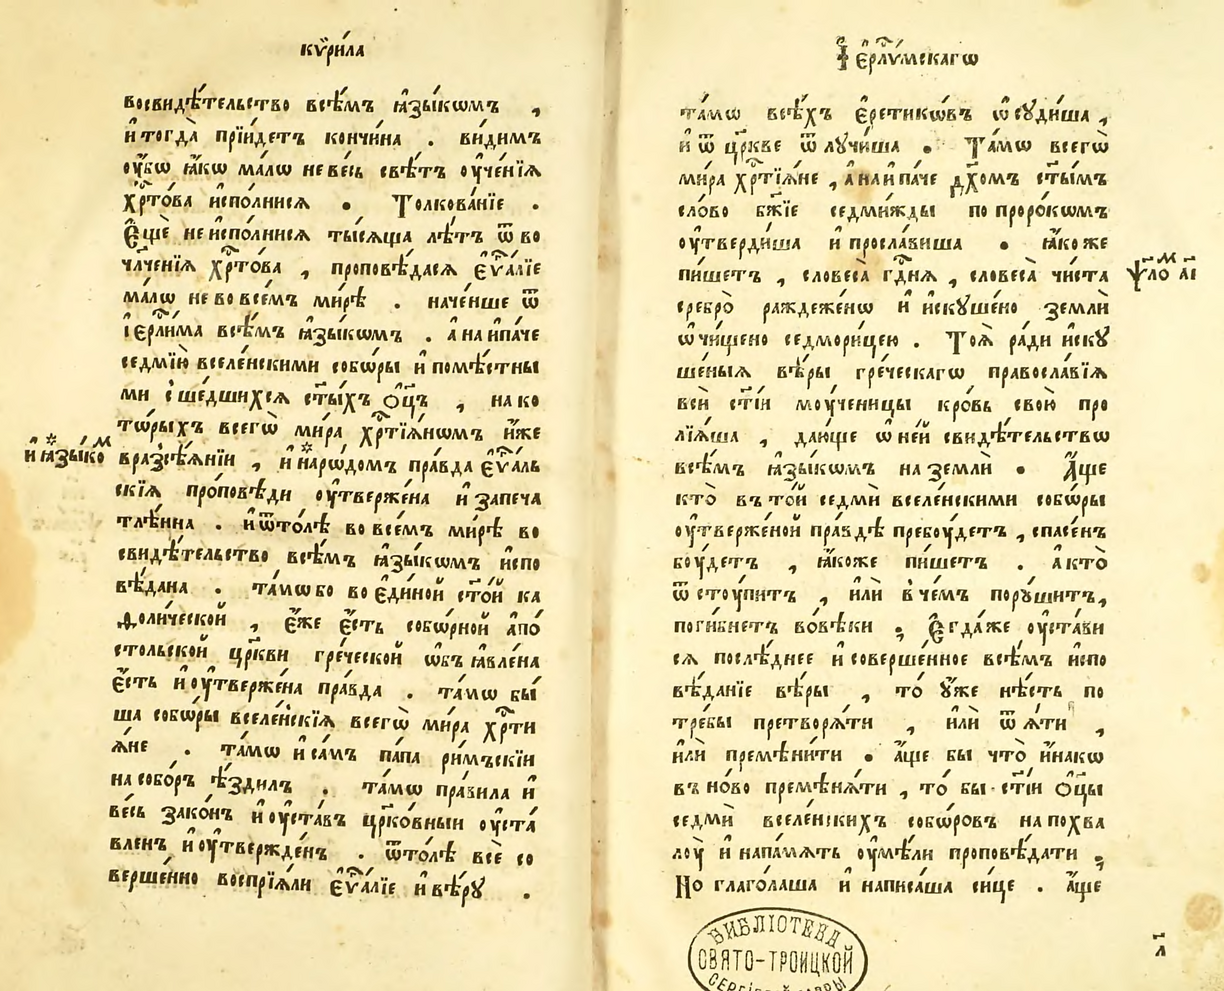 кѷри́ла
восвидѣ́тельство всѣ́мъ ꙗ҆зы́кѡмъ ,
и҆ тогда̀ прїи́детъ кончи́на . ви́димъ
ᲂу҆́бѡ ꙗ҆́кѡ ма́лѡ не ве́сь свѣ́тъ ᲂу҆че́нїѧ
хрⷭ҇то́ва и҆спо́лнисѧ . Толкова́нїе .
Е҆щѐ не и҆спо́лнисѧ ты́сѧща лѣ́тъ ѿ во
чл҃че́нїѧ хрⷭ҇то́ва , проповѣ́дасѧ є҆ѵⷢ҇а́лїе
ма́лѡ не во все́мъ ми́рѣ . наче́нше ѿ
і҆ерⷭ҇ли́ма всѣ́мъ ꙗ҆зы́кѡмъ . а҆ на и҆па́че
седмїю̀ вселе́нскими собѡ́ры и҆ помѣ́стны
ми сше́дшихсѧ ст҃ы́хъ ѻ҆ц҃ъ , на ко
то́рыхъ всегѡ̀ ми́ра хрⷭ҇тїѧ́нѡмъ и҆́же
и҆ ꙗ҆зы́коⷨ
вразсѣ́ѧнїи , и҆ наро́дѡмъ пра́вда є҆ѵⷢ҇а́ль
скїѧ про́повѣди ᲂу҆тверже́на и҆ запеча
тлѣ́нна . и҆ ѿто́лѣ во все́мъ ми́рѣ во
свидѣ́тельство всѣ́мъ ꙗ҆зы́кѡмъ и҆спо
вѣ́дана . та́мѡ бо во є҆ди́ной ст҃о́й ка
ѳоли́ческой , є҆́же є҆́сть собо́рной а҆по́
стольской цр҃кви гре́ческой ѡ҆б ꙗ҆вле́на
є҆́сть и҆ ᲂу҆тверже́на пра́вда . та́мѡ бы́
ша собѡ́ры вселе́нскїѧ всегѡ̀ ми́ра хрⷭ҇ти
ꙗ҆́не . та́мѡ и҆ са́мъ па́па ри́мъскїи
на собо́ръ ѣ҆́здилъ . та́мѡ пра́вила и҆
ве́сь зако́нъ и҆ ᲂу҆ста́въ цр҃ко́вныи ᲂу҆ста́
вленъ и҆ ᲂу҆твержде́нъ . ѿто́лѣ всѐ со
верше́нно воспрїѧ́ли є҆ѵⷢ҇а́лїе и҆ вѣ́рꙋ .
І҆ерⷭ҇лѵ́мскагѡ
та́мѡ всѣ́хъ є҆ретикѡ́въ ѡ҆сꙋди́ша ,
и҆ ѿ цр҃кве ѿлꙋчи́ша . Та́мѡ всегѡ̀
ми́ра хрⷭ҇тїѧ́не , а҆ на и҆па́че дх҃омъ ст҃ы́мъ
сло́во бж҃їе седми́жды по проро́кѡмъ
ᲂу҆тверди́ша и҆ просла́виша . ꙗ҆́коже
пи́шетъ , словеса̀ гдⷭ҇нѧ , словеса̀ чи́ста
ѱало́ⷨ а҃і
сребро̀ раждеже́нѡ и҆ и҆скꙋше́но землѝ
ѡ҆чи́щено седмори́цею . Тоѧ̀ ра́ди и҆скꙋ
ше́ныѧ вѣ́ры гре́ческагѡ правосла́вїѧ
всѝ ст҃і́и моу́ченицы кро́вь свою̀ про
лїѧ́ша , даю́ще ѡ҆ не́й свидѣ́тельствѡ
всѣ́мъ ꙗ҆зы́кѡмъ на землѝ . А҆́ще
кто̀ в то́й седмѝ вселе́нскими собѡ́ры
ᲂу҆тверже́ной пра́вдѣ пребоу́детъ , спасе́нъ
боу́детъ , ꙗ҆́коже пи́шетъ . а҆ кто̀
ѿстоу́питъ , и҆лѝ в че́мъ порꙋ́шитъ ,
поги́бнетъ во́вѣки ; Е҆гда́же ᲂу҆ста́ви
сѧ послѣ́днее и҆ соверше́нное всѣ́мъ и҆спо
вѣ́данїе вѣ́ры , то́ ᲂу҆же нѣ́сть по
тре́бы претворѧ́ти , и҆лѝ ѿ ѧ́ти ,
и҆лѝ премѣни́ти . а҆́ще бы что̀ и҆на́кѡ
въ но́во премѣнѧ́ти , то́ бы ст҃і́и ѻ҆ц҃ы
седмѝ вселе́нскихъ собѡ́ровъ на похва
лоу̀ и҆ на па́мѧть ᲂу҆мѣ́ли проповѣ́дати ;
Но глаго́лаша и҆ написа́ша си́це . а҆́ще
л҃
БИБЛІОТЕКА
СВЯТО-ТРОИЦКОЙ